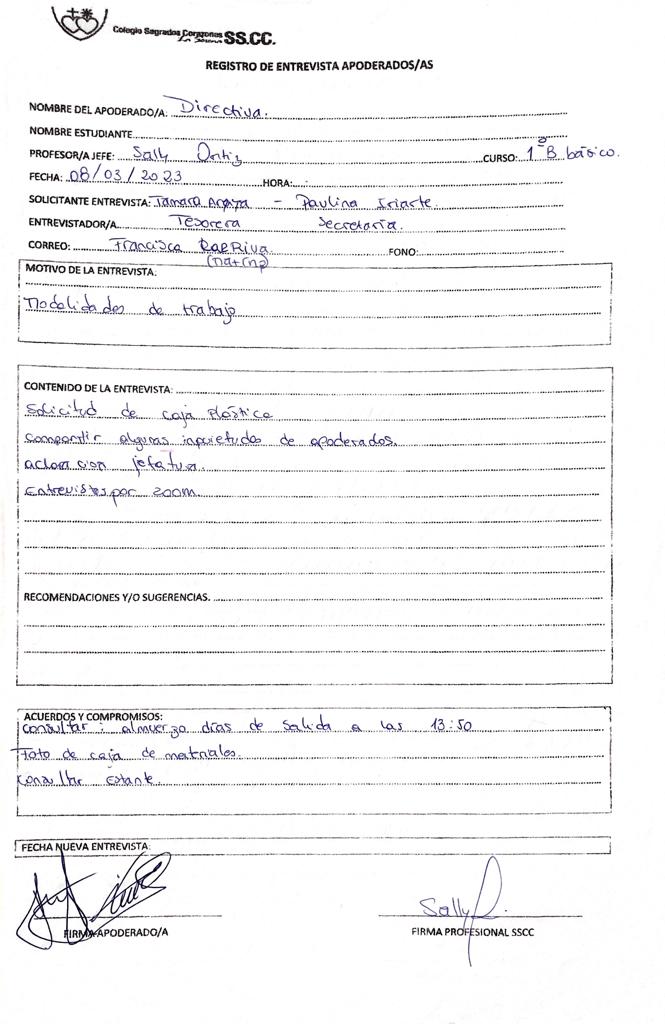 Colegio Sagrados Corazones SS.CC.
La Serena
REGISTRO DE ENTREVISTA APODERADOS/AS
NOMBRE DEL APODERADO/A: Directiva.
NOMBRE ESTUDIANTE
PROFESOR/A JEFE: Sally Ortiz CURSO: 1º B básico.
FECHA: 08/03/2023 HORA: :
SOLICITANTE ENTREVISTA: Tamara Araya - Paulina Iriarte.
ENTREVISTADOR/A Tesorera Secretaria.
CORREO: Francisca FONO:
MOTIVO DE LA ENTREVISTA:
Modalidades de trabajo
CONTENIDO DE LA ENTREVISTA:
Solicitud de caja plástica
Compartir algunas inquietudes de apoderados.
aclaracion jefatura.
Entrevistas por zoom.
RECOMENDACIONES Y/O SUGERENCIAS.
ACUERDOS Y COMPROMISOS:
Consultar: almuerzo días de Salida a las 13:50
Foto de caja de materiales.
Consultar Estante.
FECHA NUEVA ENTREVISTA:
Sally
FIRMA APODERADO/A FIRMA PROFESIONAL SSCC